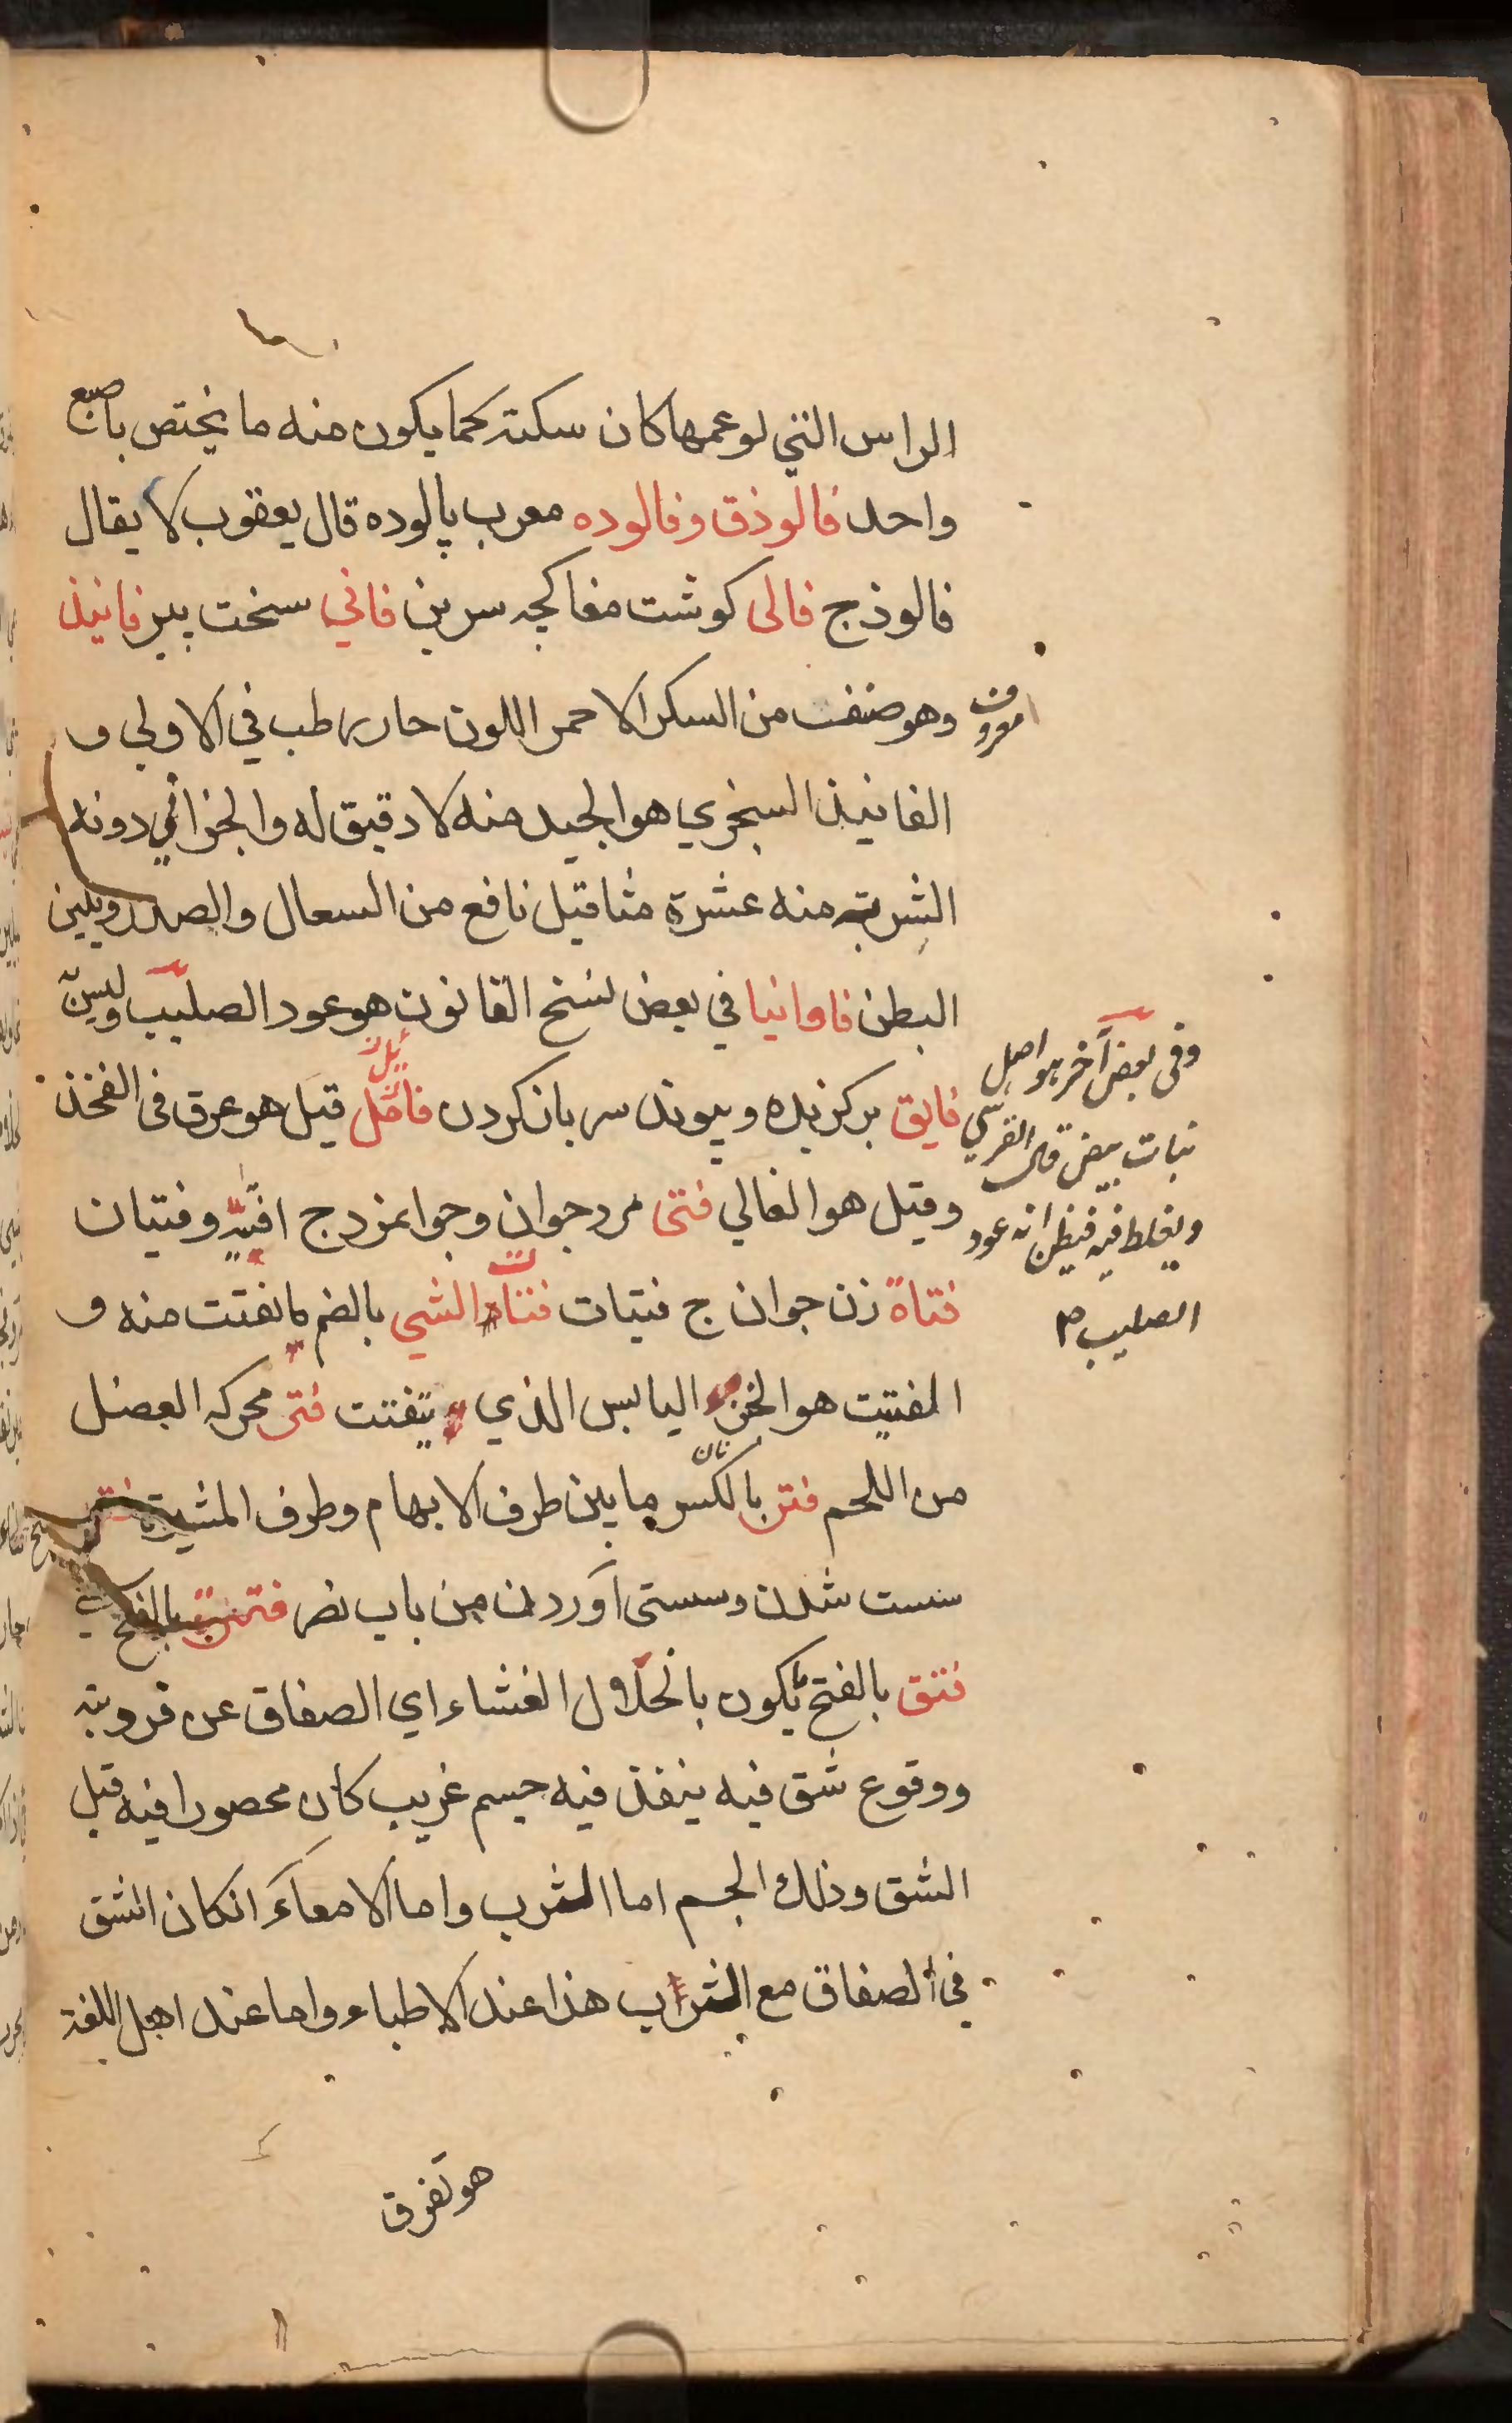 الراس التي لو عمها كان سكتة كما يكون منه ما يختص باصبع
واحد فالوذق وفالوده معرب پالوده قال يعقوب لا يقال
فالوذج فالى كوشت مغاكچه سرين فاني سخت پير فانيذ
معروف وهو صنف من السكر الاحمر اللون حار رطب في الاولي و
الفانيذ السنجري هو الجيد منه لا دقيق له والخزائني دونه
الشربة منه عشرة مثاقيل نافع من السعال والصدر ويلين
البطن فاوانيا في بعض نسخ القانون هو عود الصليب وليس
وفى بعض آخر هو اصل
نبات بيض قال القرسي
ويغلط فيه فيظن انه عود
الصليب
فايق بركزيده وپيوند سر باز كردن فائل قيل هو عرق فى الفخذ
وقيل هو الفالي فتى مرد جوان وجوانمرد ج افتية وفتيان
فتاة زن جوان ج فتيات فتات الشي بالضم ما نفتت منه و
المفتيت هو الخبز اليابس الذي يتفتت فتى محركه العضل
من اللحم فتر بالكسر ما بين طرف الابهام وطرف المشيرة
سست شدن وسستى آوردن من باب نصر فترت بالفتح
فتق بالفتح يكون بانحلال الغشاء اي الصفاق عن فرويته
ووقوع شق فيه ينفذ فيه جسم غريب كان محصورا فيه قبل
الشق وذلك الجسم اما الثرب واما الامعاء انكان انشق
في الصفاق مع الثرب هذا عند الاطباء واما عند اهل اللغة
هو تفرق